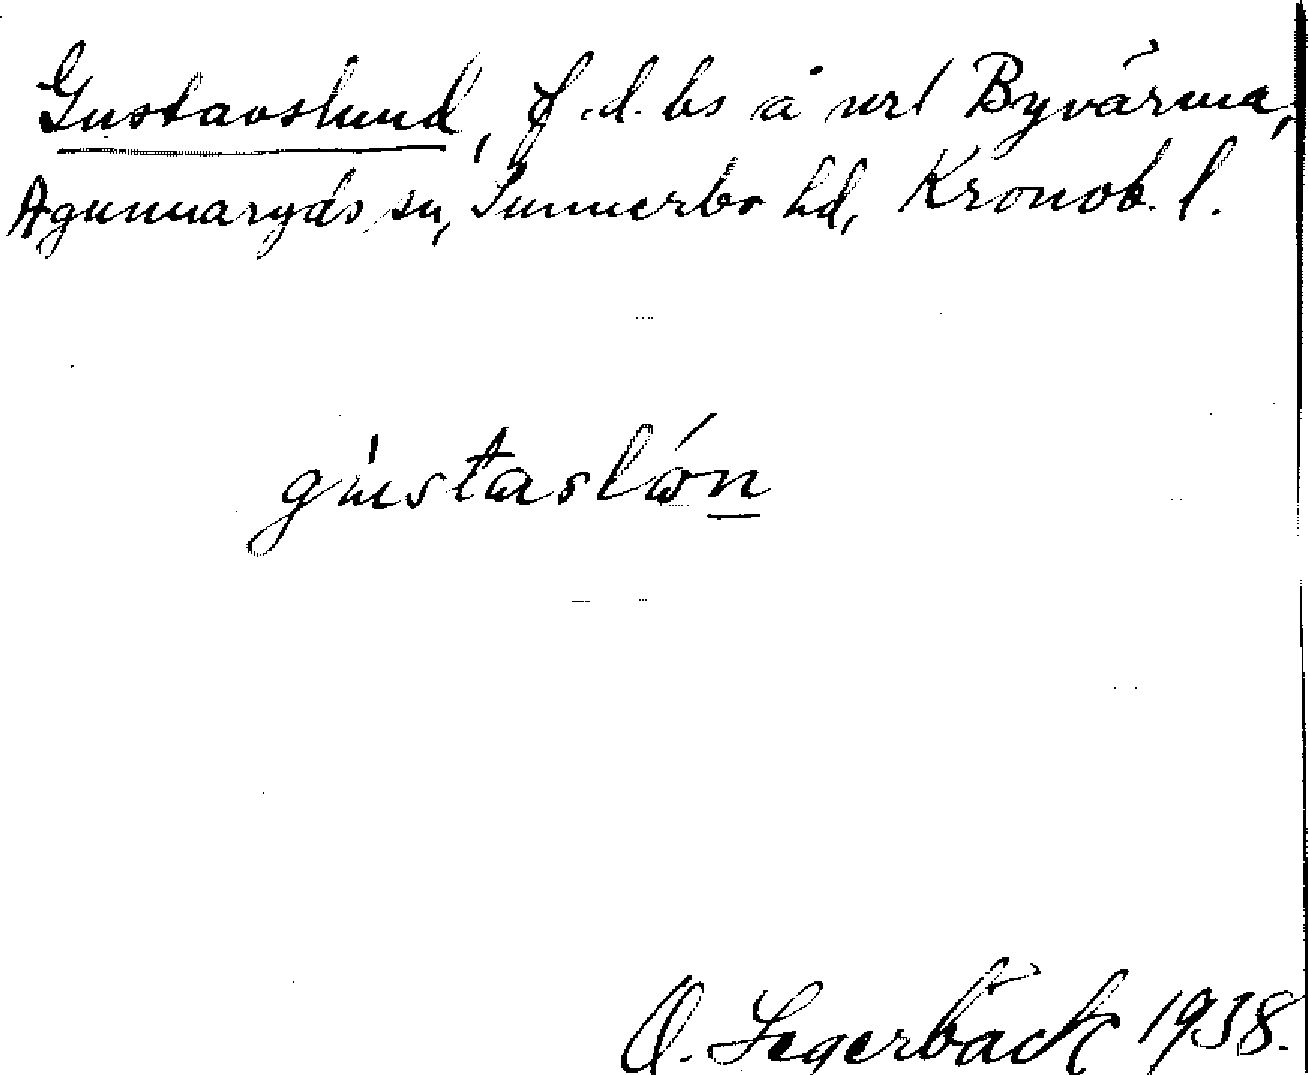 Gustavslund, f.d. bs å url Byvärma,
Agunnaryds sn, Sunnerbo hd, Kronob. l.
gustaslón
O. Segerbäck 1938.